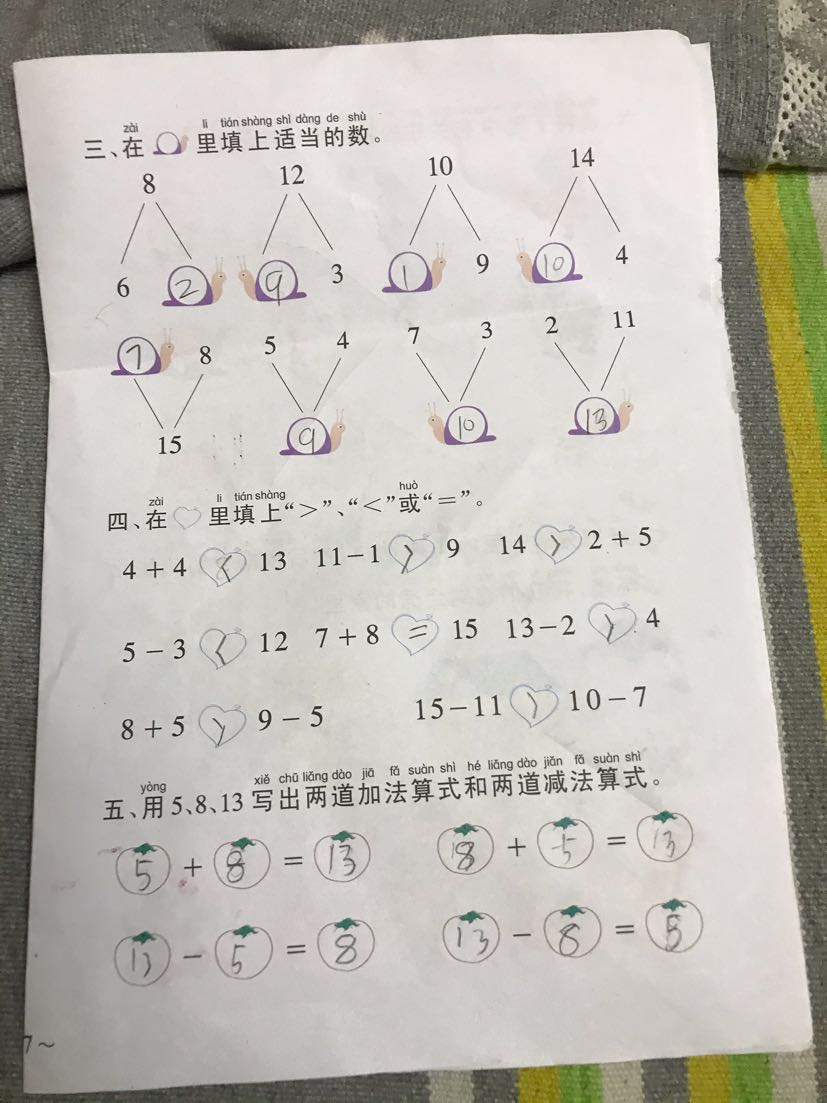 zài li tián shàng shì dàng de shù
三、在 里填上适当的数。
8 12 10 14
6 2 9 3 1 9 10 4
7 8 5 4 7 3 2 11
15 9 10 13
zài li tián shàng huò
四、在 里填上“>”、“<”或“=”。
4+4 < 13 11-1 > 9 14 > 2+5
5-3 < 12 7+8 = 15 13-2 > 4
8+5 > 9-5 15-11 > 10-7
yòng xiě chū liǎng dào jiā fǎ suàn shì hé liǎng dào jiǎn fǎ suàn shì
五、用 5、8、13 写出两道加法算式和两道减法算式。
5 + 8 = 13 8 + 5 = 13
13 - 5 = 8 13 - 8 =
7~